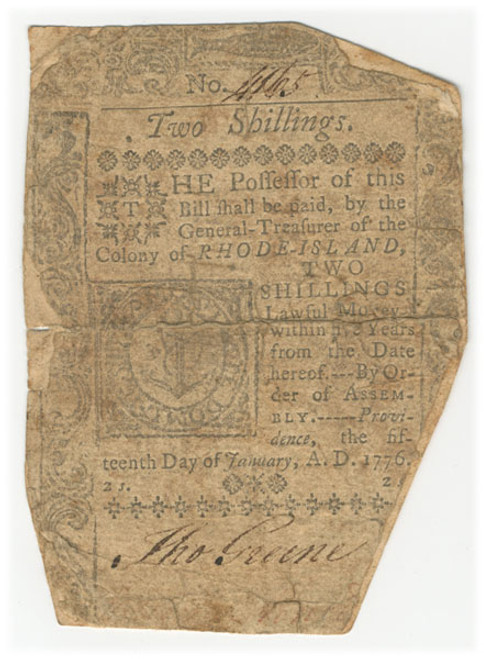 No. 4165
Two Shillings.
THE Poſſeſſor of this
Bill ſhall be paid, by the
General-Treaſurer of the
Colony of RHODE-ISLAND,
TWO
SHILLINGS
Lawful Money
within Years
from the Date
hereof.---By Or-
der of ASSEM-
BLY.-----Provi-
dence, the fif-
teenth Day of January, A. D. 1776.
2 s. 2 s.
Tho Greene